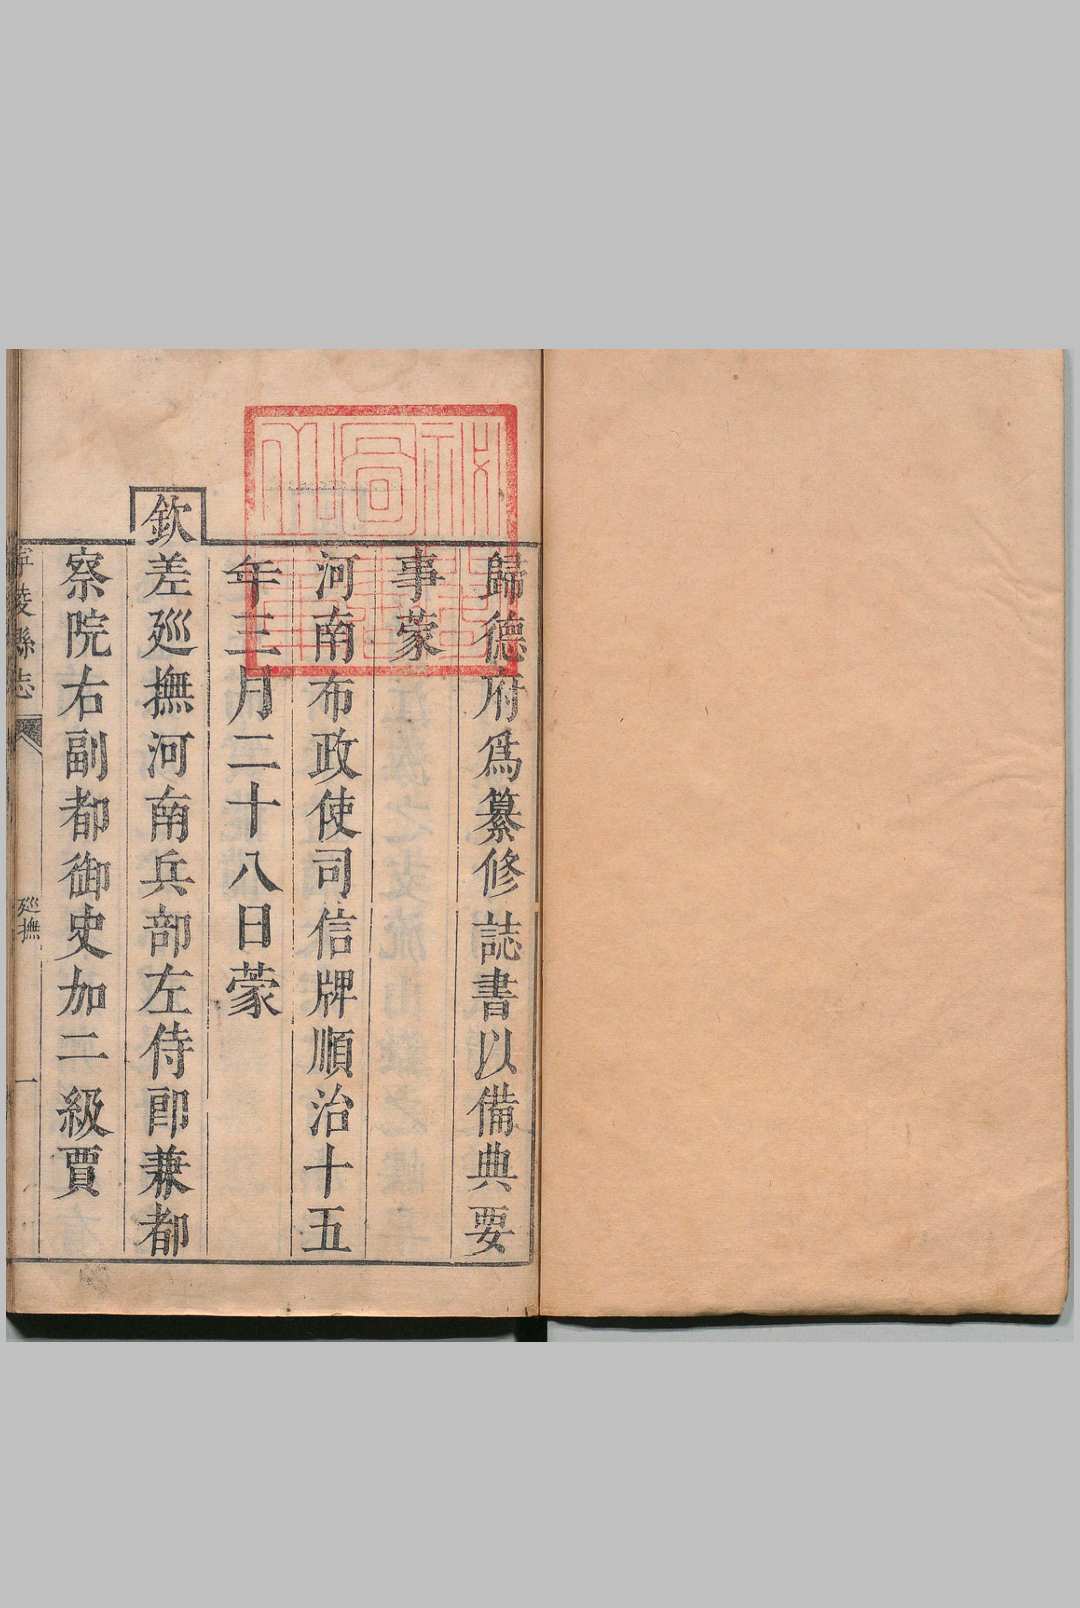 歸德府爲纂修誌書以備典要
事蒙
河南布政使司信牌順治十五
年三月二十八日蒙
欽差廵撫河南兵部左侍郎兼都
察院右副都御史加二級賈
寧陵縣志
廵撫
一